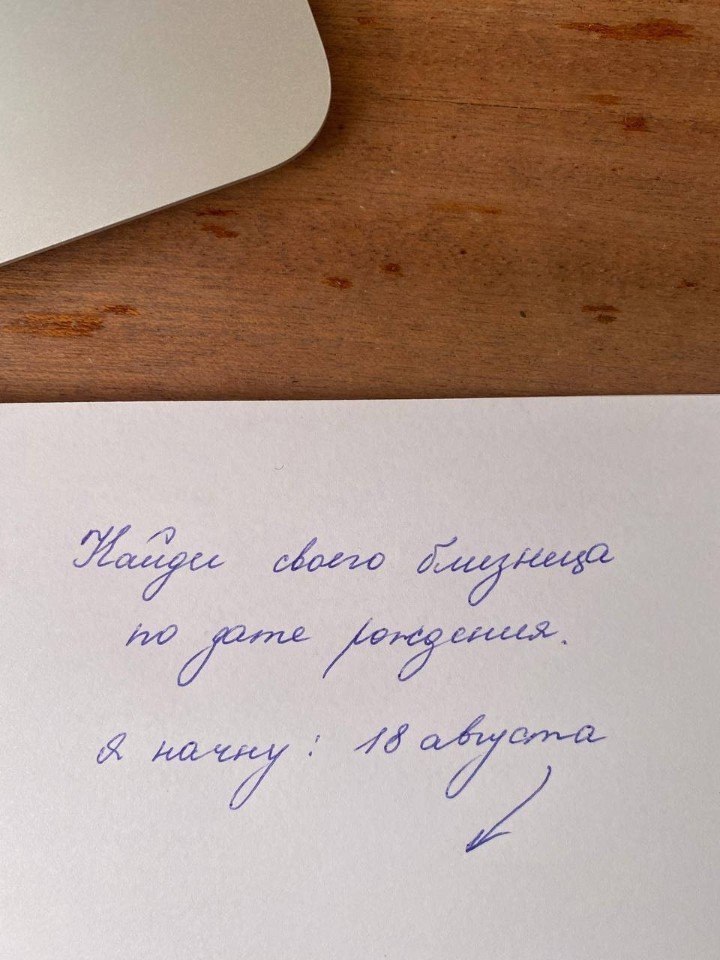 Найди своего близнеца
по дате рождения.
Я начну: 18 августа